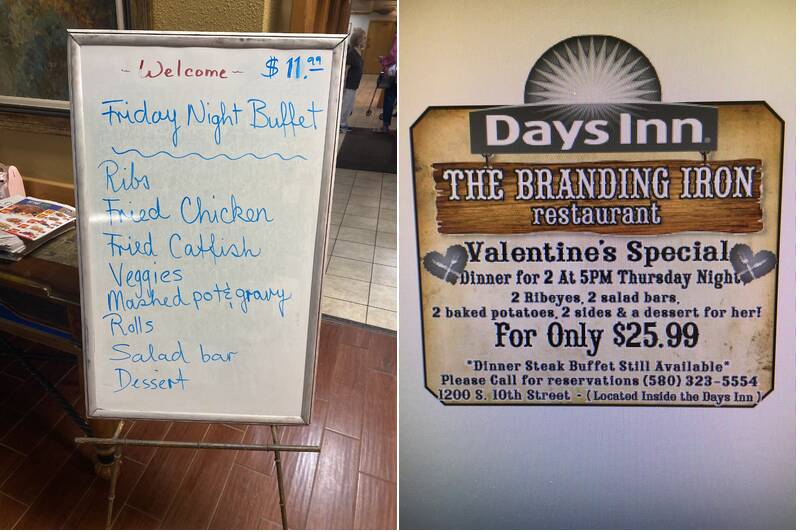 - Welcome - $11.99
Friday Night Buffet
Ribs
Fried Chicken
Fried Catfish
Veggies
Mashed pot & gravy
Rolls
Salad bar
Dessert
Days Inn®
THE BRANDING IRON
restaurant
Valentine's Special
Dinner for 2 At 5PM Thursday Night
2 Ribeyes, 2 salad bars,
2 baked potatoes, 2 sides & a dessert for her!
For Only $25.99
*Dinner Steak Buffet Still Available*
Please Call for reservations (580) 323-5554
1200 S. 10th Street - (Located Inside the Days Inn)